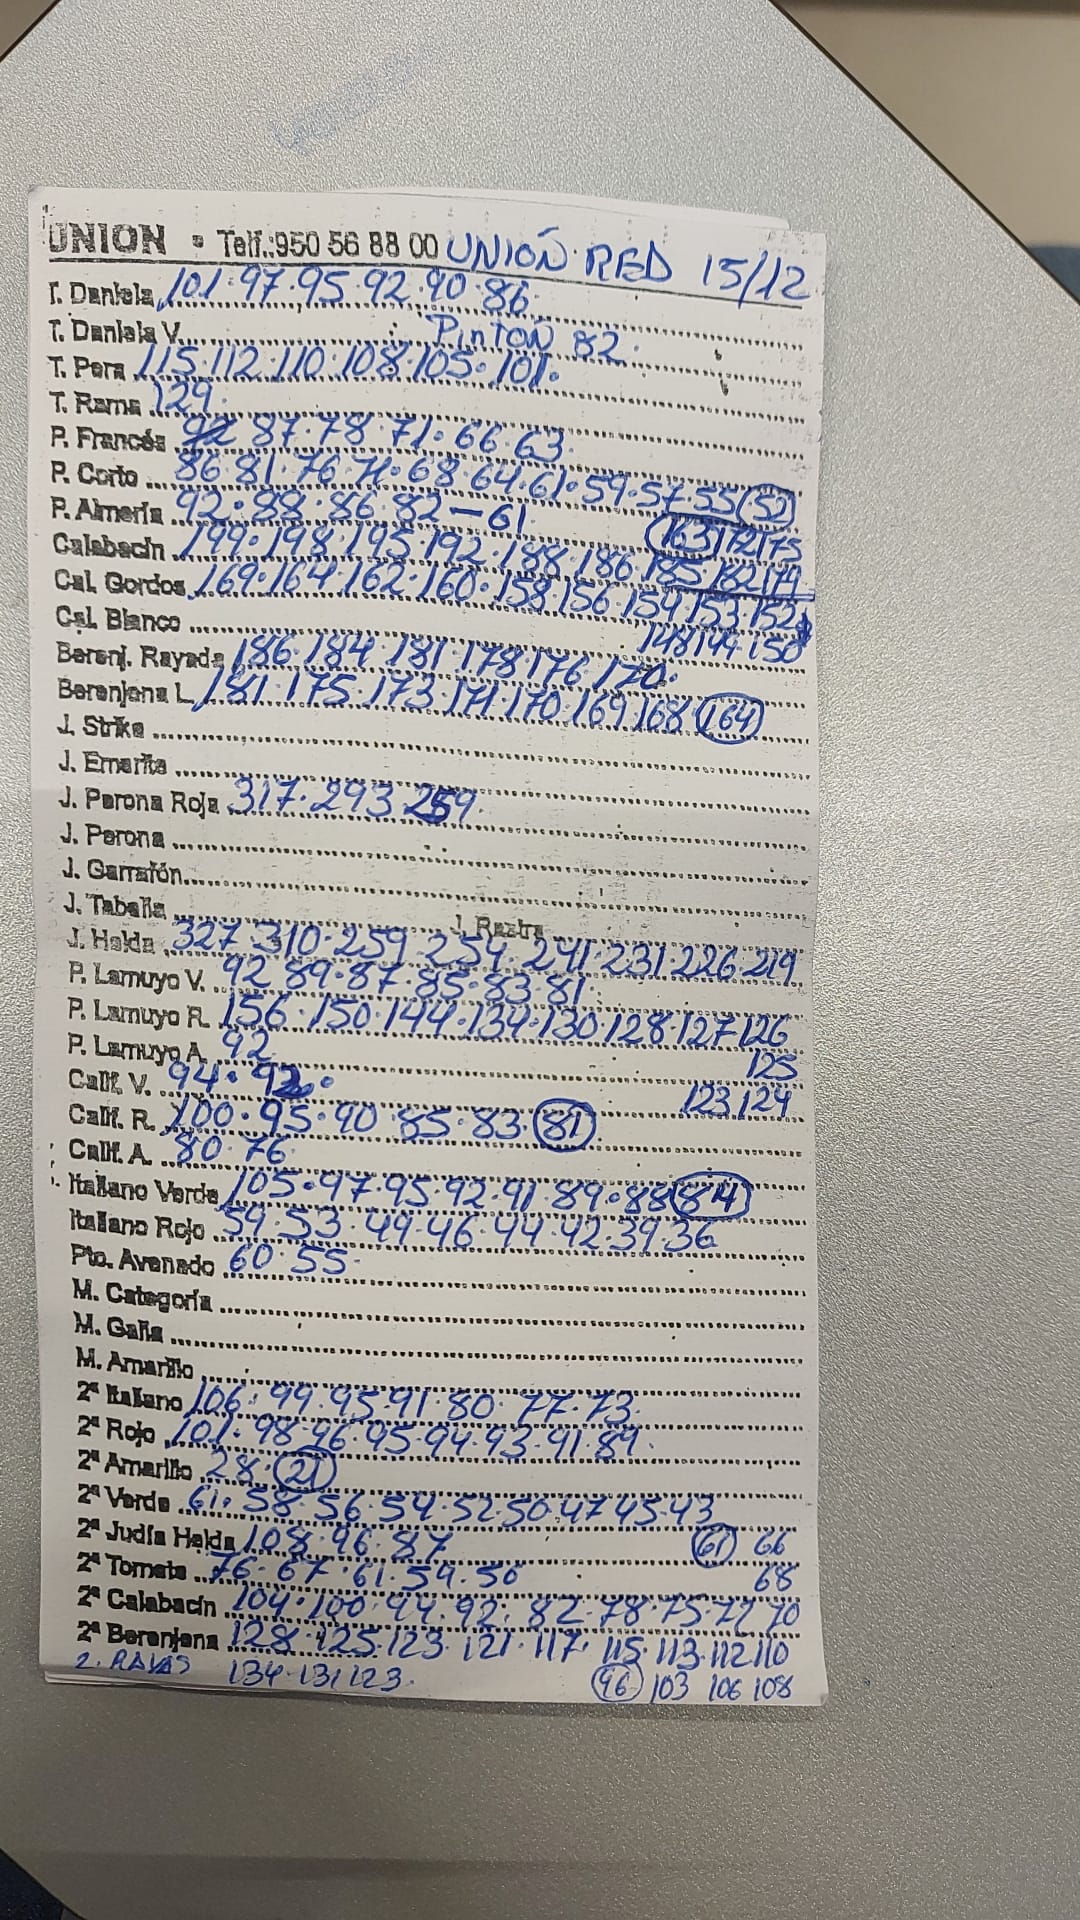 UNION • Telf.:950 56 88 00 UNIÓN. RED 15/12
T. Daniela 101.97.95.92.90.86.
T. Daniela V. PINTON 82.
T. Pera 115.112.110.108.105.101.
T. Rama 129.
P. Francés 92 87.78.71.66.63.
P. Corto 86.81.76.71.68.64.61.59.57.55 (52)
P. Almería 92.88.86.82-61. (163) 172 175
Calabacín 199.198.195.192.188.186.185.182 179
Cal. Gordos 169.164.162.160.158.156.154.153.152
Cal. Blanco 148 149.150
Berenj. Rayada 186.184.181.178.176.170.
Berenjena L. 181.175.173.171.170.169.168 (164)
J. Strike
J. Emerite
J. Perona Roja 317.293.259.
J. Perona
J. Garrafón
J. Tabella J. Rastra
J. Helda 327.310.259.254.241.231.226.219
P. Lamuyo V. 92 89.87.85.83.81.
P. Lamuyo R. 156.150.144.134.130.128.127 126
P. Lamuyo A. 92 125
Calif. V. 94.92. 123 124
Calif. R. 100.95.90 85.83.(81)
Calif. A. 80.76.
Italiano Verde 105.97.95.92.91.89.88 (84)
Italiano Rojo 59.53.49.46.44.42.39.36
Pto. Avenado 60.55.
M. Categoría
M. Galia
M. Amarillo
2ª Italiano 106.99.95.91.80.77.73.
2ª Rojo 101.98.96.95.94.93.91.89.
2ª Amarillo 28.(21)
2ª Verde 61.58.56.54.52.50.47 45.43
2ª Judía Helda 108.96.87 (61) 66
2ª Tomate 76.67.61.59.50 68
2ª Calabacín 104.100.94.92.82.78.75.72 70
2ª Berenjena 128.125.123.121.117.115.113.112 110
2. RAYAS 134.131 123. (96) 103 106 108